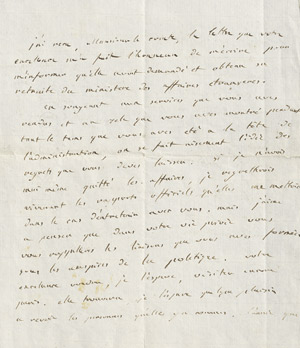 j'ai reçu, Monsieur le comte, la lettre que votre
excellence m'a fait l'honneur de m'écrire pour
m'informer qu'elle avait demandé et obtenu sa
retraite du ministère des affaires étrangères.
en songeant aux services que vous avez
rendus et au zèle que vous avez montré pendant
tout le tems que vous avez été à la tête de
l'administration, on se fait aisément l'idée des
regrets que vous devez laisser. si je n'avais
moi même quitté les affaires, je regretterais
vivement les rapports officiels qu'elles me mettaient
dans le cas d'entretenir avec vous, mais j'aime
à penser que dans votre vie privée vous
vous rappellerez les liaisons que vous avez formées
sous les auspices de la politique. votre
excellence voudra, je l'espère, visiter encore
paris. elle trouvera je l'espère quelque plaisir
à revoir les personnes qu'elle y a connues.